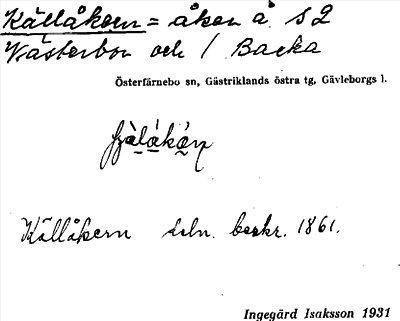 Källåkern = åker å S2
Västerbor och 1 Backa
Österfärnebo sn, Gästriklands östra tg, Gävleborgs l.
Källåkern beskr. 1861.
Ingegärd Isaksson 1931